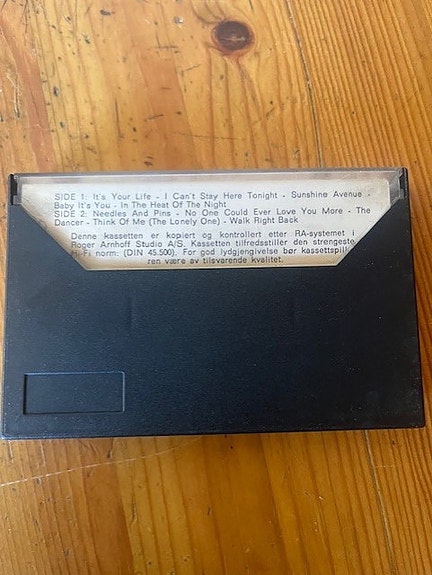 SIDE 1: It's Your Life - I Can't Stay Here Tonight - Sunshine Avenue -
Baby It's You - In The Heat Of The Night
SIDE 2: Needles And Pins - No One Could Ever Love You More - The
Dancer - Think Of Me (The Lonely One) - Walk Right Back
Denne kassetten er kopiert og kontrollert etter RA-systemet i
Roger Arnhoff Studio A/S. Kassetten tilfredsstiller den strengeste
Hi-Fi norm: (DIN 45.500). For god lydgjengivelse bør kassettspille
ren være av tilsvarende kvalitet.